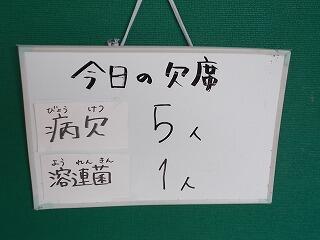 今日の欠席
びょう けつ
病欠 5人
よう れん きん
溶連菌 1人